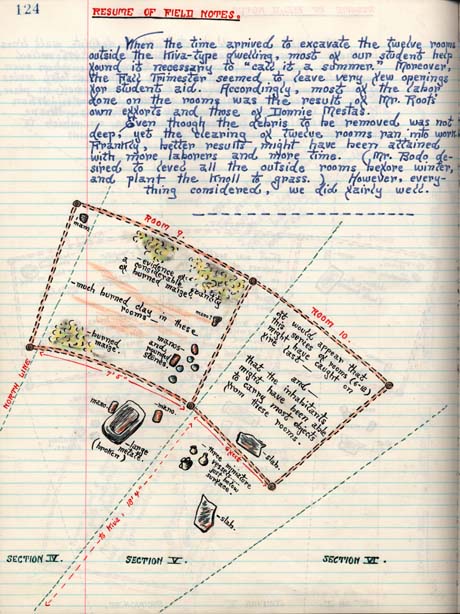 124
RESUME OF FIELD NOTES.
When the time arrived to excavate the twelve rooms
outside the Kiva-type dwelling, most of our student help
found it necessary to "call it a summer." Moreover,
the Fall Trimester seemed to leave very few openings
for student aid. Accordingly, most of the labor
done on the rooms was the result of Mr. Root's
own efforts and those of Donnie Mestas.
Even though the debris to be removed was not
deep, yet the clearing of twelve rooms ran into work.
Frankly, better results might have been attained
with more laborers and more time. (Mr. Bodo de-
sired to level all the outside rooms before winter,
and plant the knoll to grass.) However, every-
thing considered, we did fairly well.
ROOM 9.
mano.
evidence of
a considerable quantity
of burned maize.
—much burned clay in these
rooms—
mano
manos
and
pounding
stones.
—burned
maize.
ROOM 10.
It would appear that
this series of rooms (6-12)
might have caught on
fire last —
— and —
that the inhabitants
might have been able
to carry most objects
from these rooms.
NORTH LINE
7'5"
mano.
—mano.
—large
metate.
(broken)
three miniature
vessels—
just below
surface.
—slab.
—slab.
to Kiva, 19'4"
SECTION IV.
SECTION V.
SECTION VI.